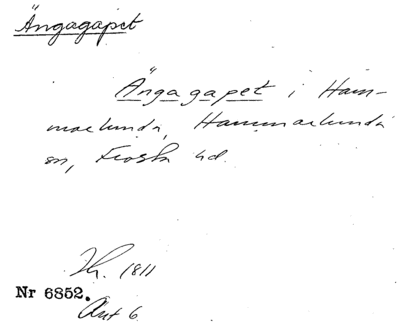 Ängagapet
Ängagapet i Ham-
marlunda, Hammarlunda
sn, Frosta hd.
Th. 1811
Nr 6852.
Ant 6